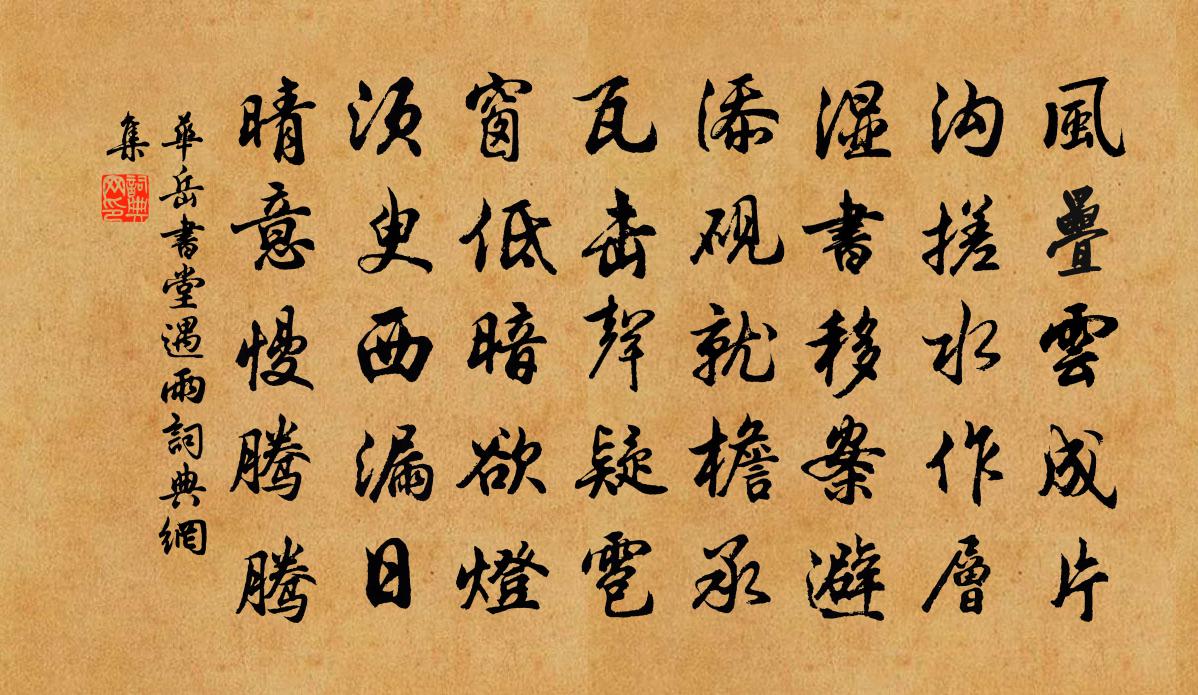 風疊雲成片
沟搓水作層
湿書移案避
添硯就檐承
瓦击聲疑雹
窗低暗欲燈
须臾西漏日
晴意慢腾腾
華岳書堂遇雨詞典網
集
詞典网印